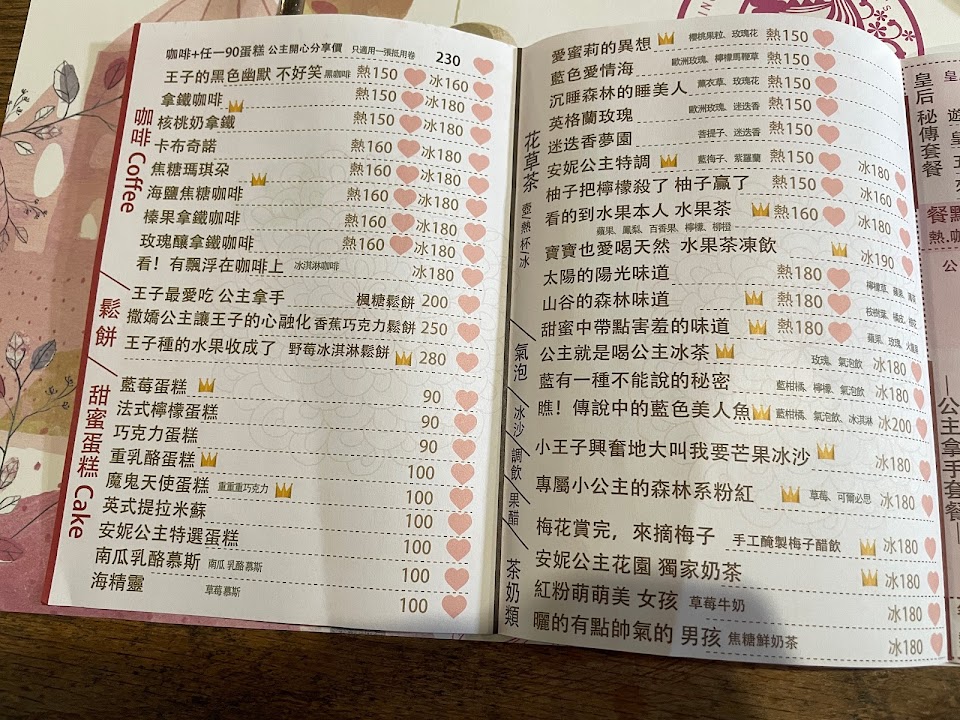 咖啡+任一90蛋糕 公主開心分享價 只適用一張抵用卷 230
王子的黑色幽默 不好笑 黑咖啡 熱150 冰160
拿鐵咖啡 熱150 冰180
核桃奶拿鐵 熱150 冰180
卡布奇諾 熱160 冰180
焦糖瑪琪朵 熱160 冰180
海鹽焦糖咖啡 熱160 冰180
榛果拿鐵咖啡 熱160 冰180
玫瑰釀拿鐵咖啡 熱160 冰180
看！有飄浮在咖啡上 冰淇淋咖啡 冰180
咖啡 Coffee
王子最愛吃 公主拿手 楓糖鬆餅 200
撒嬌公主讓王子的心融化 香蕉巧克力鬆餅 250
王子種的水果收成了 野莓冰淇淋鬆餅 280
鬆餅
藍莓蛋糕 90
法式檸檬蛋糕 90
巧克力蛋糕 90
重乳酪蛋糕 100
魔鬼天使蛋糕 重重重巧克力 100
英式提拉米蘇 100
安妮公主特選蛋糕 100
南瓜乳酪慕斯 南瓜 乳酪慕斯 100
海精靈 草莓慕斯 100
甜蜜蛋糕 Cake
愛蜜莉的異想 櫻桃果粒、玫瑰花 熱150
藍色愛情海 歐洲玫瑰、檸檬馬鞭草 熱150
沉睡森林的睡美人 薰衣草、玫瑰花 熱150
英格蘭玫瑰 歐洲玫瑰、迷迭香 熱150
迷迭香夢園 菩提子、迷迭香 熱150
安妮公主特調 藍梅子、紫羅蘭 熱150 冰180
柚子把檸檬殺了 柚子贏了 熱150 冰160
看的到水果本人 水果茶 熱160 冰180
蘋果、鳳梨、百香果、檸檬、柳橙
寶寶也愛喝天然 水果茶凍飲 冰190
太陽的陽光味道 熱180
山谷的森林味道 熱180
甜蜜中帶點害羞的味道 熱180
花草茶 壺/熱 杯/冰
公主就是喝公主冰茶 玫瑰、氣泡飲 冰180
藍有一種不能說的秘密 藍柑橘、檸檬、氣泡飲 冰180
瞧！傳說中的藍色美人魚 藍柑橘、氣泡飲、冰淇淋 冰200
氣泡
小王子興奮地大叫我要芒果冰沙 冰180
專屬小公主的森林系粉紅 草莓、可爾必思 冰180
冰沙 調飲 果醋
梅花賞完，來摘梅子 手工醃製梅子醋飲 冰180
安妮公主花園 獨家奶茶 冰180
紅粉萌萌美 女孩 草莓牛奶 冰180
曬的有點帥氣的 男孩 焦糖鮮奶茶 冰180
茶奶類
皇后秘傳套餐
—公主拿手套餐—